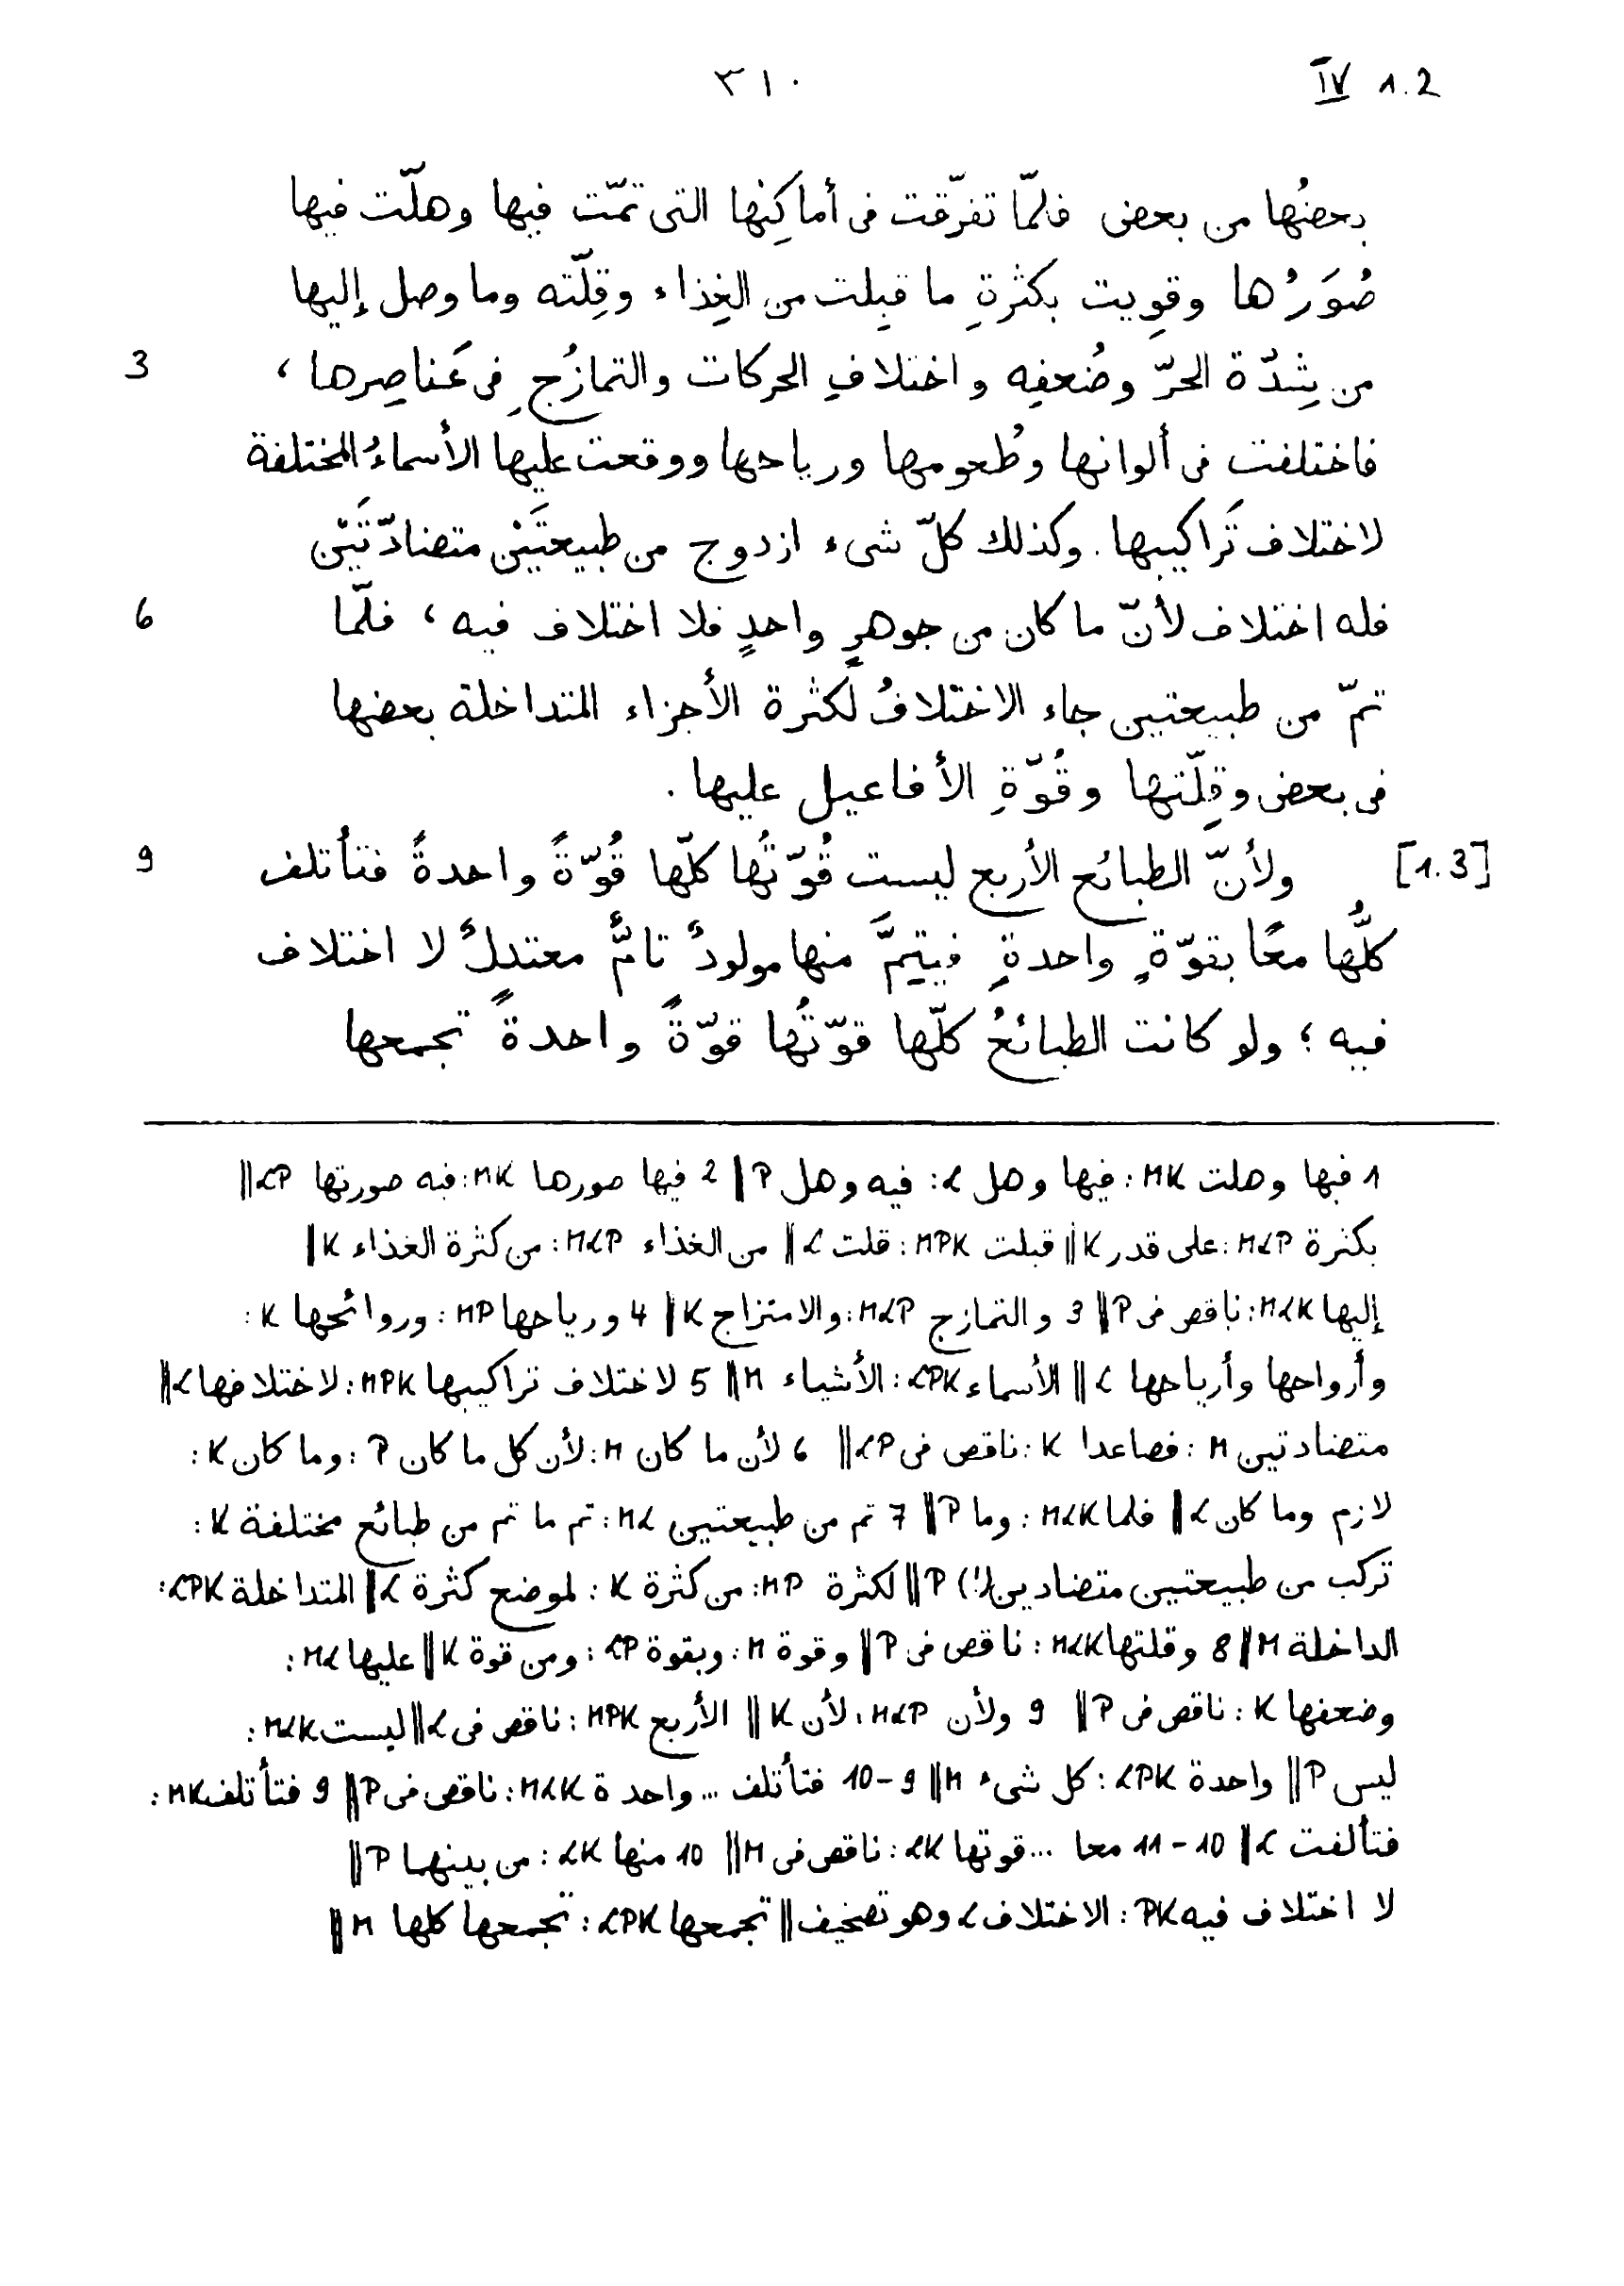 IV 1.2
٣١٠
بعضُها من بعض فلمّا تفرّقت فى أماكِنِها التى تمّت فيها وهلّت فيها
صُوَرُها وقوِيت بكثرةِ ما قبِلت من الغِذاء وقِلّته وما وصل إليها
من شِدّة الحرّ وضُعفِه واختلافِ الحركات والتمازُجِ فى عَناصِرها ، 3
فاختلفت فى ألوانها وطُعومها ورياحها ووقعت عليها الأسماءُ المختلفة
لاختلاف تَراكيبها . وكذلك كلّ شىء ازدوج من طبيعتَيْن متضادّتَيْن
فله اختلاف لأنّ ما كان من جوهرٍ واحدٍ فلا اختلاف فيه ، فلمّا 6
تمّ من طبيعتين جاء الاختلافُ لكثرة الأجزاء المتداخلة بعضها
فى بعض وقِلّتها وقُوّةِ الأفاعيل عليها .
[1.3] ولأنّ الطبائع الأربع ليست قُوّتُها كلّها قُوّةً واحدةً فتأتلف 9
كلُّها معًا بقوّةٍ واحدةٍ فيتِمَّ منها مولودٌ تامٌّ معتدِلٌ لا اختلاف
فيه ؛ ولو كانت الطبائعُ كلّها قوّتُها قوّةً واحدةً تجمعها
1 فيها وهلت MK : فيها وهل L : فيه وهل P ‖ 2 فيها صورها MK : فيه صورتها LP ‖
بكثرة MLP : على قدر K ‖ قبلت MPK : قلت L ‖ من الغذاء MLP : من كثرة الغذاء K ‖
إليها MLK : ناقص فى P ‖ 3 والتمازج MLP : والامتزاج K ‖ 4 ورياحها MP : وروائحها K :
وأرواحها وأرياحها L ‖ الأسماء LPK : الأشياء M ‖ 5 لاختلاف تراكيبها MPK : لاختلافها L ‖
متضادتين M : فصاعدا K : ناقص فى LP ‖ 6 لأن ما كان M : لأن كل ما كان P : وما كان K :
لازم وما كان L ‖ فلما MLK : وما P ‖ 7 تم من طبيعتين ML : تم ما تم من طبائع مختلفة K :
تركب من طبيعتين متضادين (!) P ‖ لكثرة MP : من كثرة K : لموضع كثرة L ‖ المتداخلة LPK :
الداخلة M ‖ 8 وقلتها MLK : ناقص فى P ‖ وقوة M : وبقوة LP : ومن قوة K ‖ عليها ML :
وضعفها K : ناقص فى P ‖ 9 ولأن MLP : لأن K ‖ الأربع MPK : ناقص فى L ‖ ليست MLK :
ليس P ‖ واحدة LPK : كل شىء M ‖ 9-10 فتأتلف ... واحدة MLK : ناقص فى P ‖ 9 فتأتلف MK :
فتألفت L ‖ 10-11 معا ... قوتها LK : ناقص فى M ‖ 10 منها LK : من بينهما P ‖
لا اختلاف فيه PK : الاختلاف L وهو تصحيف ‖ تجمعها LPK : تجمعها كلها M ‖